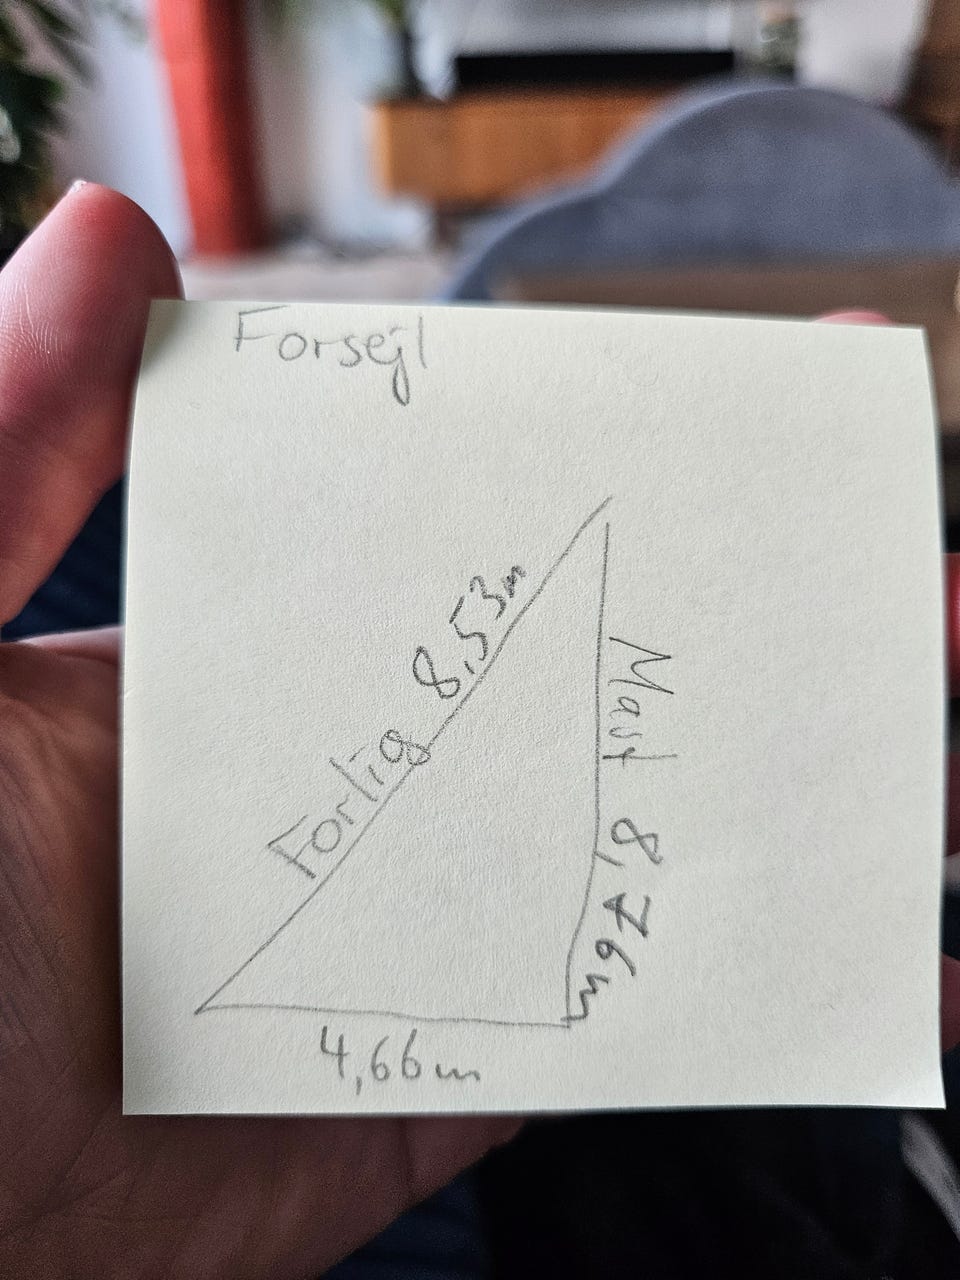 Forsejl
Forlig 8,53m
Mast 8,76m
4,66m